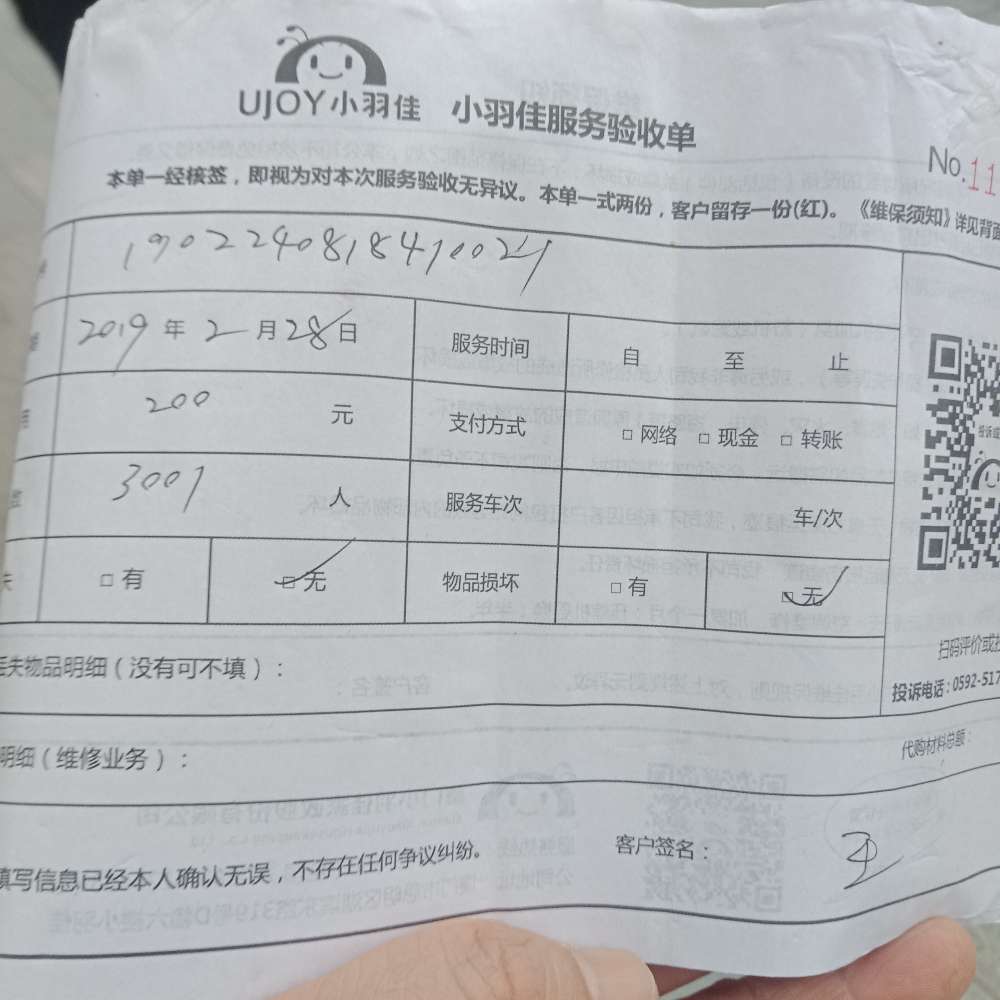 UJOY小羽佳 小羽佳服务验收单
No.11
本单一经核签，即视为对本次服务验收无异议。本单一式两份，客户留存一份(红)。《维保须知》详见背面
190224081841002
2019年2月28日 服务时间 自 至 止
200 元 支付方式 □网络 □现金 □转账
3001 人 服务车次 车/次
失 □有 □无 物品损坏 □有 □无
失物品明细（没有可不填）：
扫码评价或
投诉电话：0592-517
明细（维修业务）：
代购材料总额：
填写信息已经本人确认无误，不存在任何争议纠纷。
客户签名：